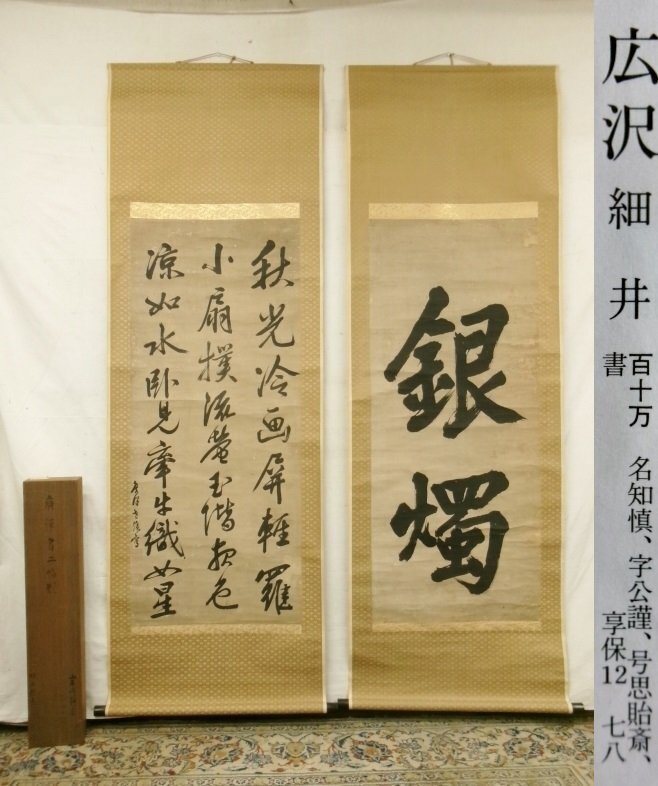 銀燭
秋光冷画屏軽羅
小扇撲流蛍玉階夜色
涼如水卧見牽牛織女星
広沢 細井
百十万 名知慎、字公謹、号思貽斎、
書 享保12 七八